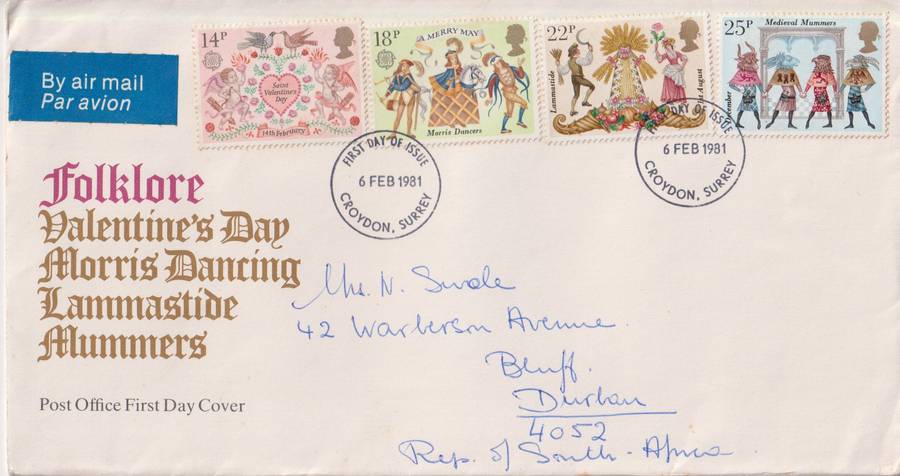 By air mail
Par avion
14P
Saint
Valentine's
Day
14th February
18P
A MERRY MAY
Morris Dancers
22P
Lammastide
1st August
25P
Medieval Mummers
December
FIRST DAY OF ISSUE
6 FEB 1981
CROYDON, SURREY
FIRST DAY OF ISSUE
6 FEB 1981
CROYDON, SURREY
Folklore
Valentine's Day
Morris Dancing
Lammastide
Mummers
Post Office First Day Cover
Mrs. N. Swale
42 Warberson Avenue
Bluff.
Durban
4052
Rep. of South-Africa